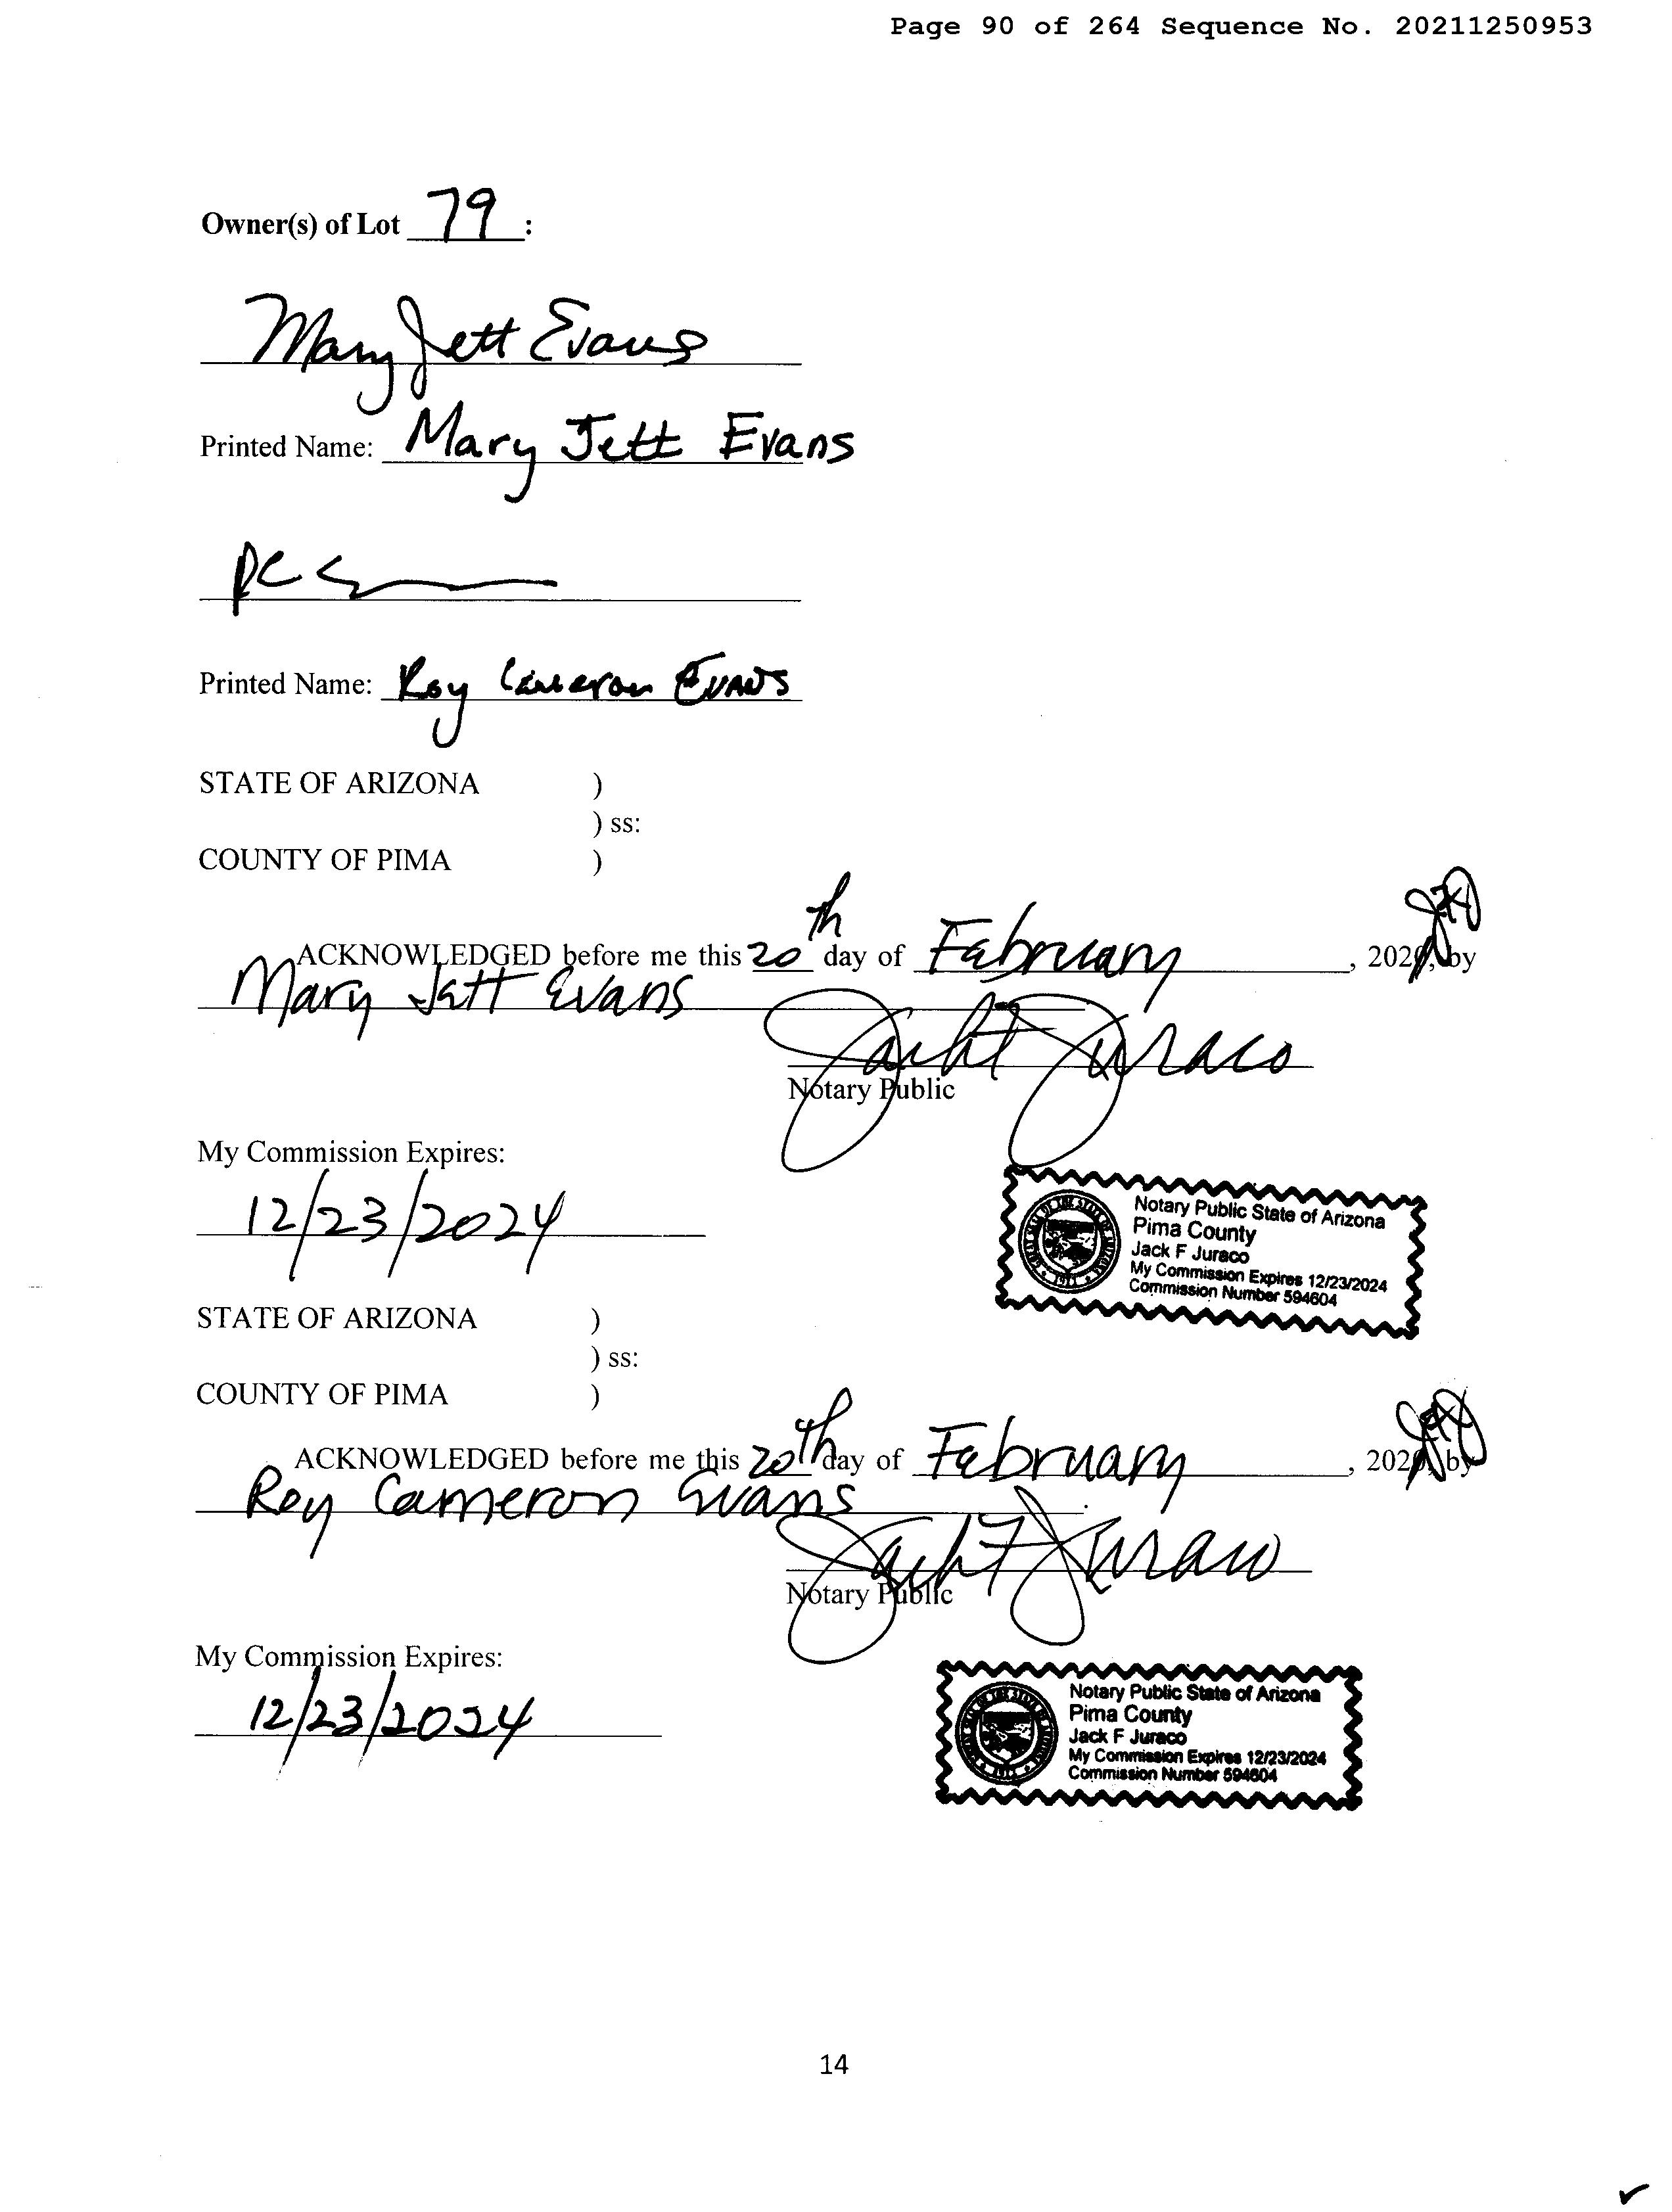 Page 90 of 264 Sequence No. 20211250953
Owner(s) of Lot 79 :
Mary Jett Evans
Printed Name: Mary Jett Evans
Printed Name: Roy Cameron Evans
STATE OF ARIZONA )
) ss:
COUNTY OF PIMA )
ACKNOWLEDGED before me this 20th day of February, 202 , by
Mary Jett Evans
Jack F Juraco
Notary Public
My Commission Expires:
12/23/2024
Notary Public State of Arizona
Pima County
Jack F Juraco
My Commission Expires 12/23/2024
Commission Number 594604
STATE OF ARIZONA )
) ss:
COUNTY OF PIMA )
ACKNOWLEDGED before me this 20th day of February, 202 , by
Roy Cameron Evans
Jack F Juraco
Notary Public
My Commission Expires:
12/23/2024
Notary Public State of Arizona
Pima County
Jack F Juraco
My Commission Expires 12/23/2024
Commission Number 594604
14